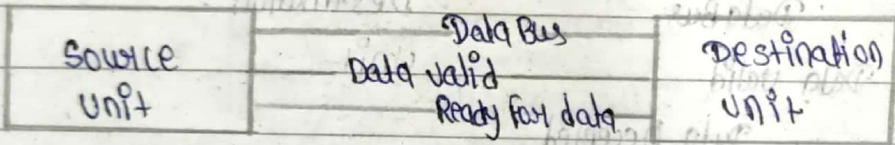 Source
Unit
Data Bus
Data valid
Ready for data
Destination
Unit